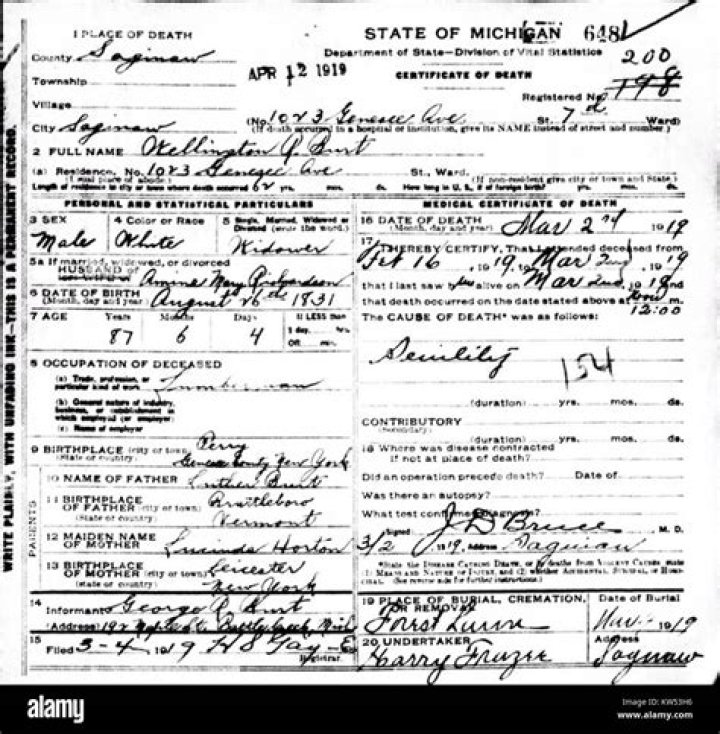 1 PLACE OF DEATH
County Saginaw
Township
Village
City Saginaw
APR 12 1919
STATE OF MICHIGAN 648
Department of State—Division of Vital Statistics
CERTIFICATE OF DEATH
200
Registered No. 198
(No. 1023 Genesee Ave St. 7th Ward)
(If death occurred in a hospital or institution, give its NAME instead of street and number.)
2 FULL NAME Wellington R Burt
(a) Residence, No. 1023 Genesee Ave St., Ward.
(Usual place of abode.) (If non-resident give city or town and State.)
Length of residence in city or town where death occurred 62 yrs. mos. ds. How long in U. S., if of foreign birth? yrs. mos. ds.
PERSONAL AND STATISTICAL PARTICULARS
3 SEX
Male
4 Color or Race
White
5 Single, Married, Widowed or Divorced (write the word.)
Widower
5a If married, widowed, or divorced
HUSBAND of
(or) WIFE of
Mary Richardson
6 DATE OF BIRTH
(Month, day and year) August 26th 1831
7 AGE Years Months Days If LESS than
87 6 4 1 day, hrs.
OR min.
8 OCCUPATION OF DECEASED
(a) Trade, profession, or
particular kind of work Lumberman
(b) General nature of industry,
business, or establishment in
which employed (or employer)
(c) Name of employer
9 BIRTHPLACE (city or town) Perry
(State or country) Genesee County New York
PARENTS
10 NAME OF FATHER Luther Burt
11 BIRTHPLACE
OF FATHER (city or town) Brattleboro
(State or country) Vermont
12 MAIDEN NAME
OF MOTHER Lucinda Horton
13 BIRTHPLACE
OF MOTHER (city or town) Leicester
(State or country) New York
14
Informant George R Burt
(Address) 192 St. Battle Creek, Mich
15
Filed 3-4 1919 H S Gay
Registrar.
MEDICAL CERTIFICATE OF DEATH
16 DATE OF DEATH
(Month, day and year) Mar 2nd 1919
17
I HEREBY CERTIFY, That I attended deceased from
Feb 16, 1919, Mar 2nd 1919
that I last saw him alive on Mar 2nd, 1919 and
that death occurred on the date stated above at noon m.
12:00
The CAUSE OF DEATH* was as follows:
Senility
154
(duration) yrs. mos. ds.
CONTRIBUTORY
(Secondary)
(duration) yrs. mos. ds.
18 Where was disease contracted
if not at place of death?
Did an operation precede death? Date of
Was there an autopsy?
What test confirmed diagnosis?
Signed J D Bruce M. D.
3/2 1919. Address Saginaw
*State the DISEASE CAUSING DEATH, or in deaths from VIOLENT CAUSES state
(1) MEANS AND NATURE OF INJURY, and (2) whether ACCIDENTAL, SUICIDAL, or HOMICIDAL.
(See reverse side for further instructions.)
19 PLACE OF BURIAL, CREMATION,
OR REMOVAL
Forest Lawn
Date of Burial
1919
20 UNDERTAKER
Harry Frazee
Address
Saginaw
WRITE PLAINLY, WITH UNFADING INK—THIS IS A PERMANENT RECORD.
alamy
Image ID: KW53H6
www.alamy.com